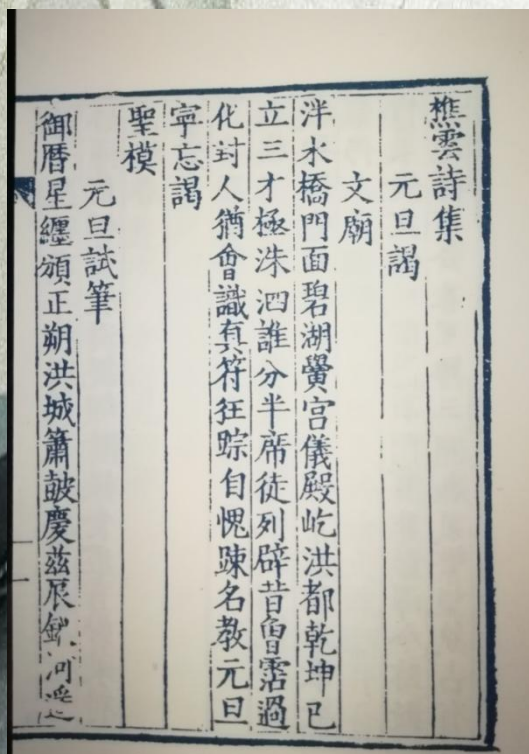 樵雲詩集
元旦謁
文廟
泮水橋門面碧湖黌宫儀殿屹洪都乾坤已
立三才極洙泗誰分半席徒列辟昔曾霑過
化封人猶會識真符狂踪自愧踈名教元旦
寧忘謁
聖模
元旦試筆
御曆星纏頒正朔洪城簫皷慶兹辰